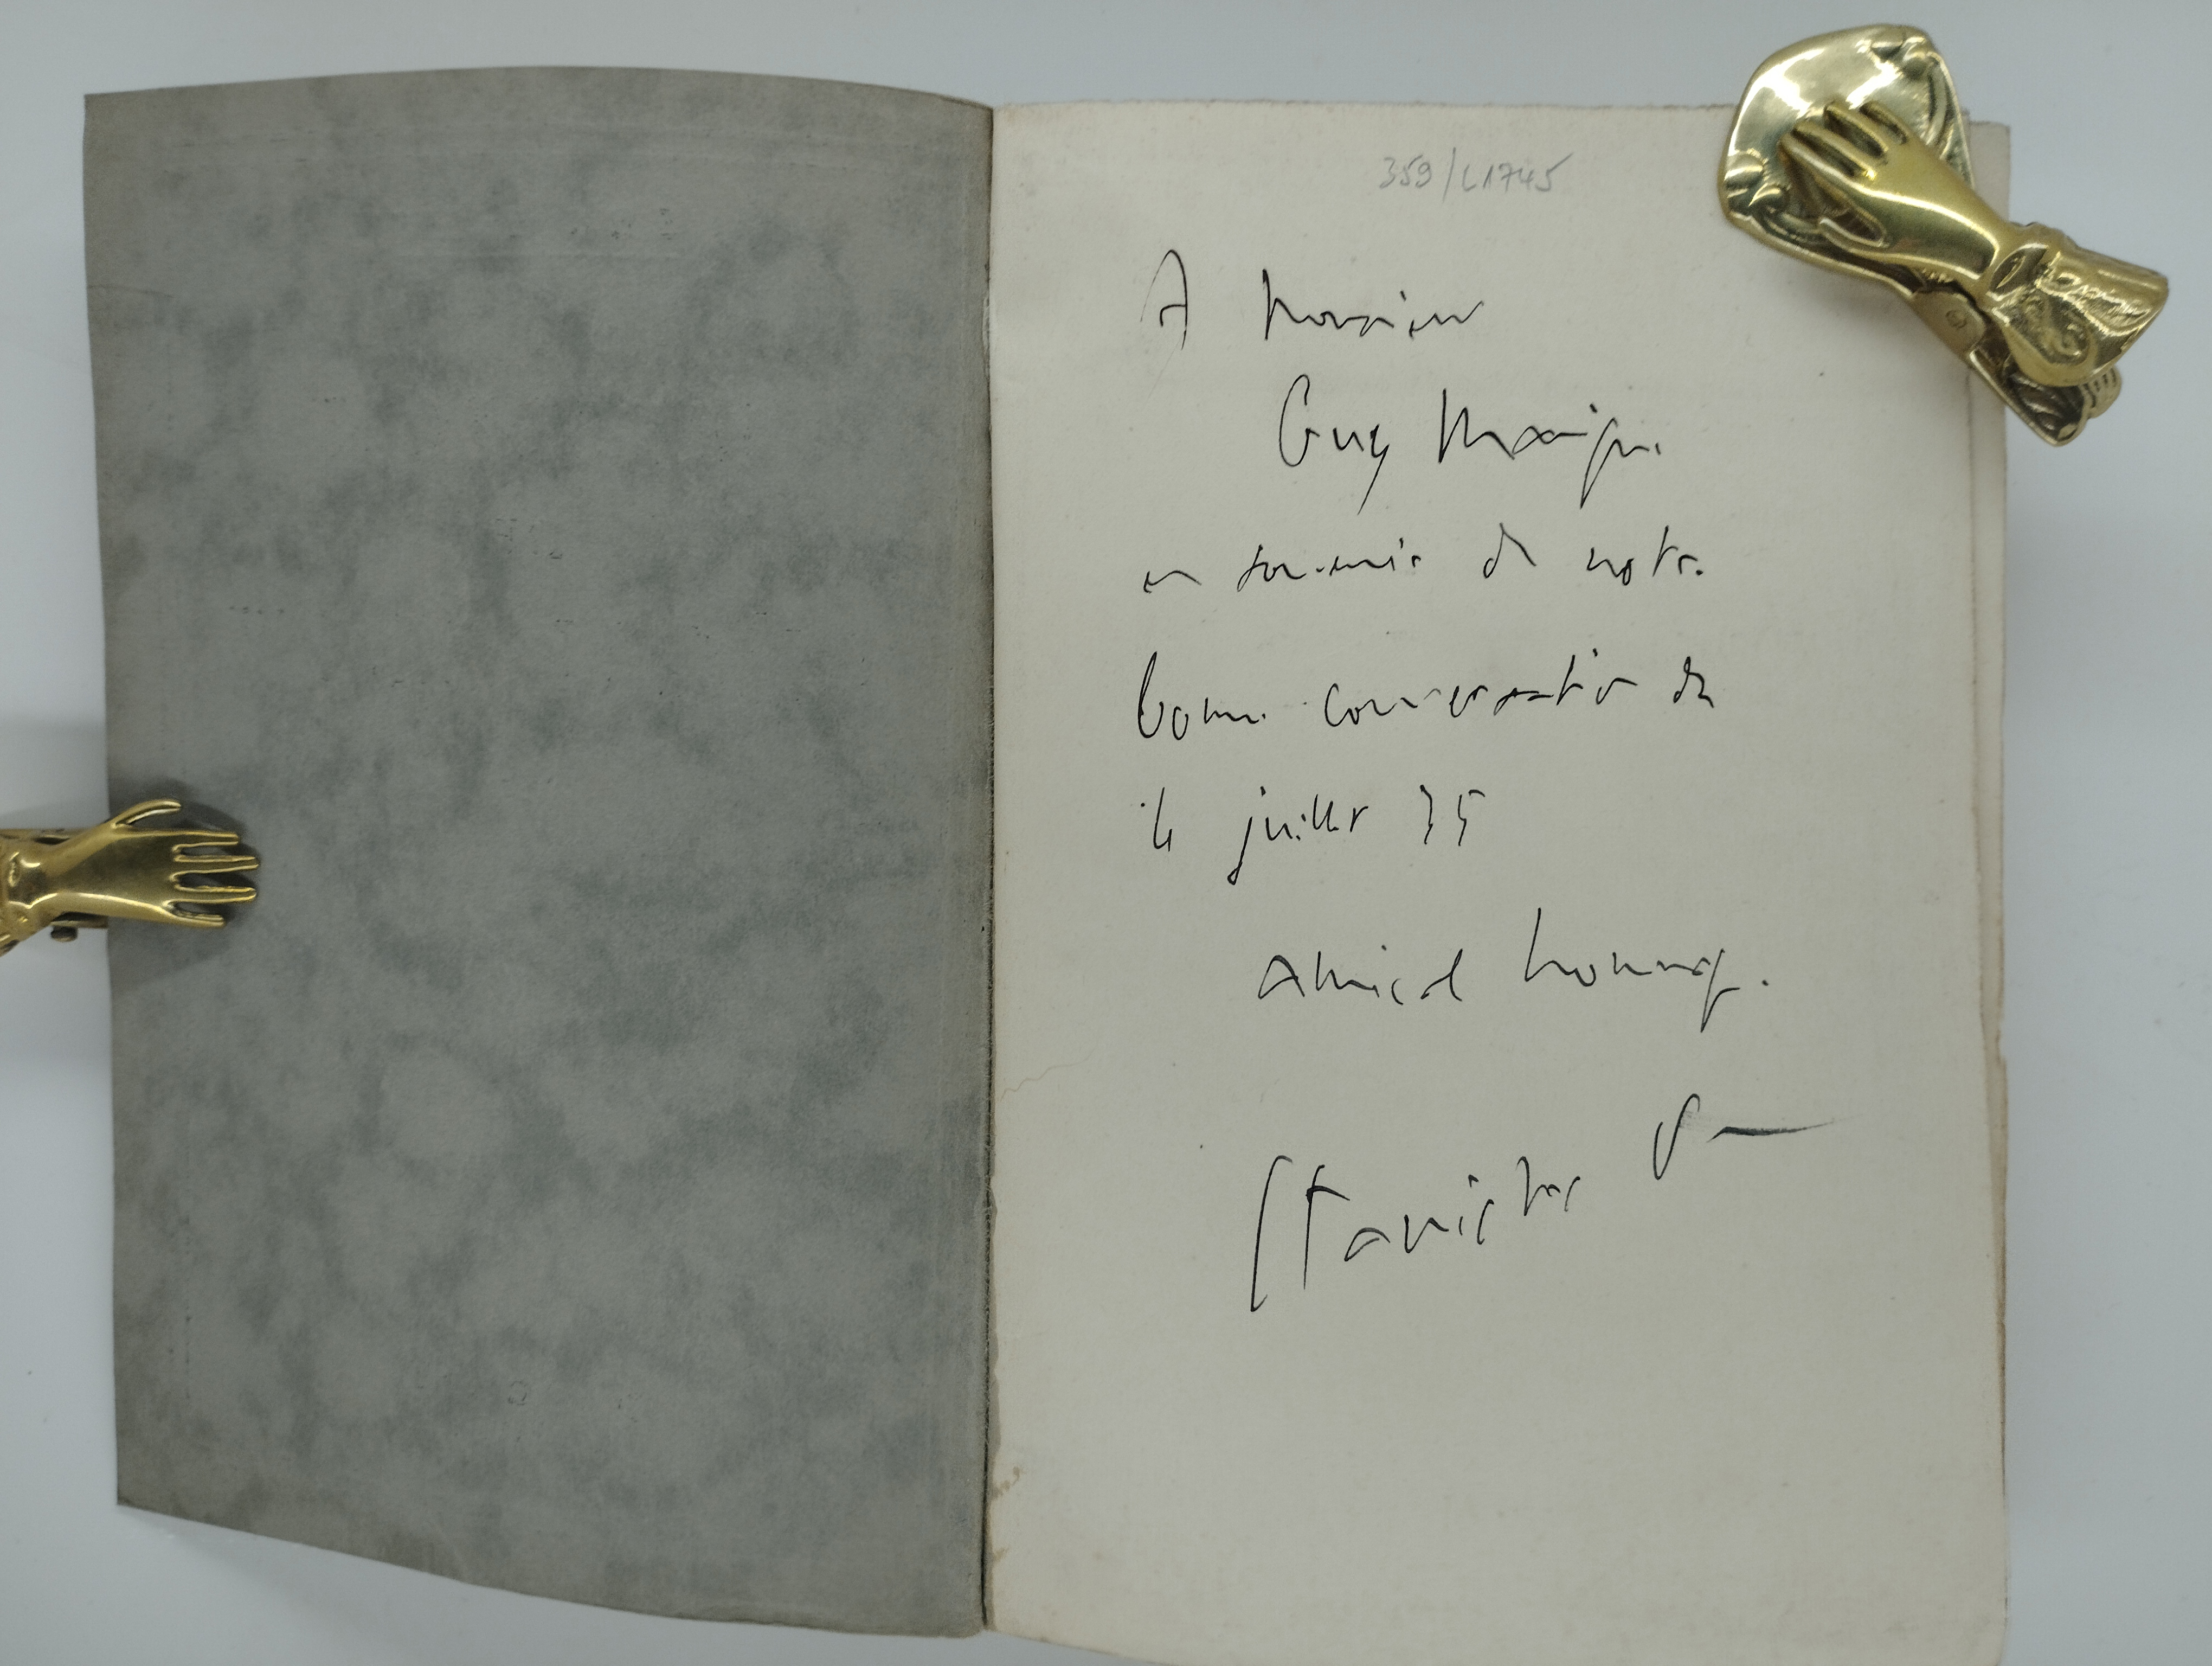 359/L1745
A Monsieur
Guy
en souvenir de notre
bonne conversation du
4 juillet 35
amical hommage
Stanislas